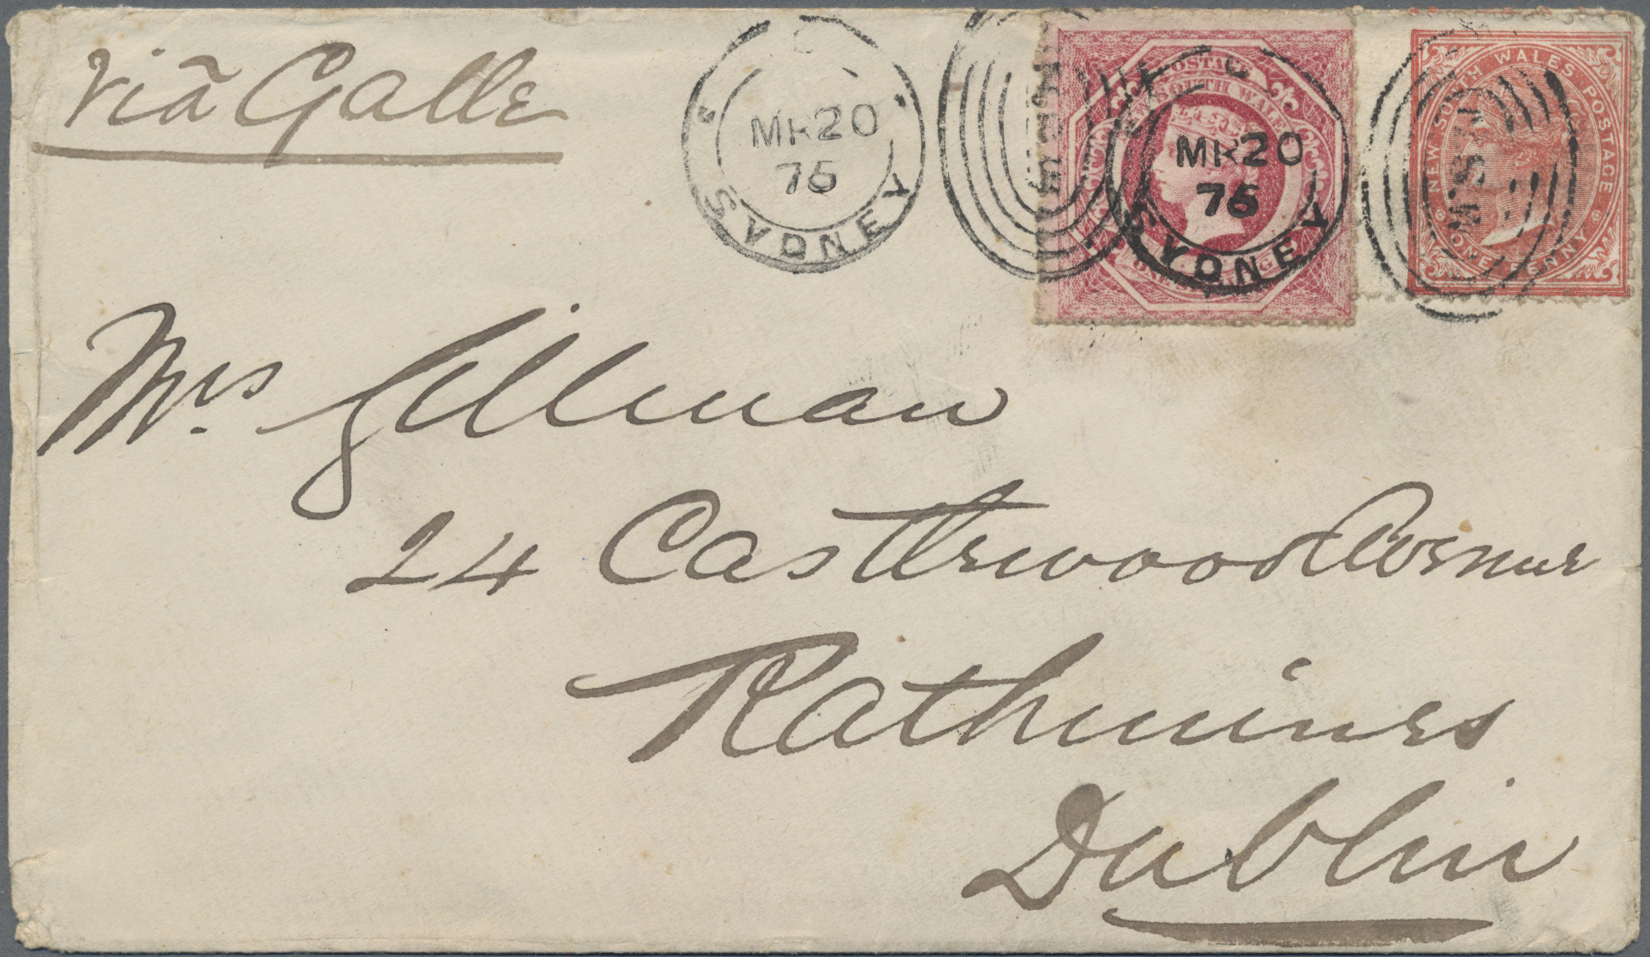 Viã Galle
MR 20
75
SYDNEY
POSTAGE
SOUTH WALES
MR 20
75
SYDNEY
N.S.W
NEW SOUTH WALES POSTAGE
ONE PENNY
Mrs. Gillman
24 Castlewood Avenue
Rathmines
Dublin